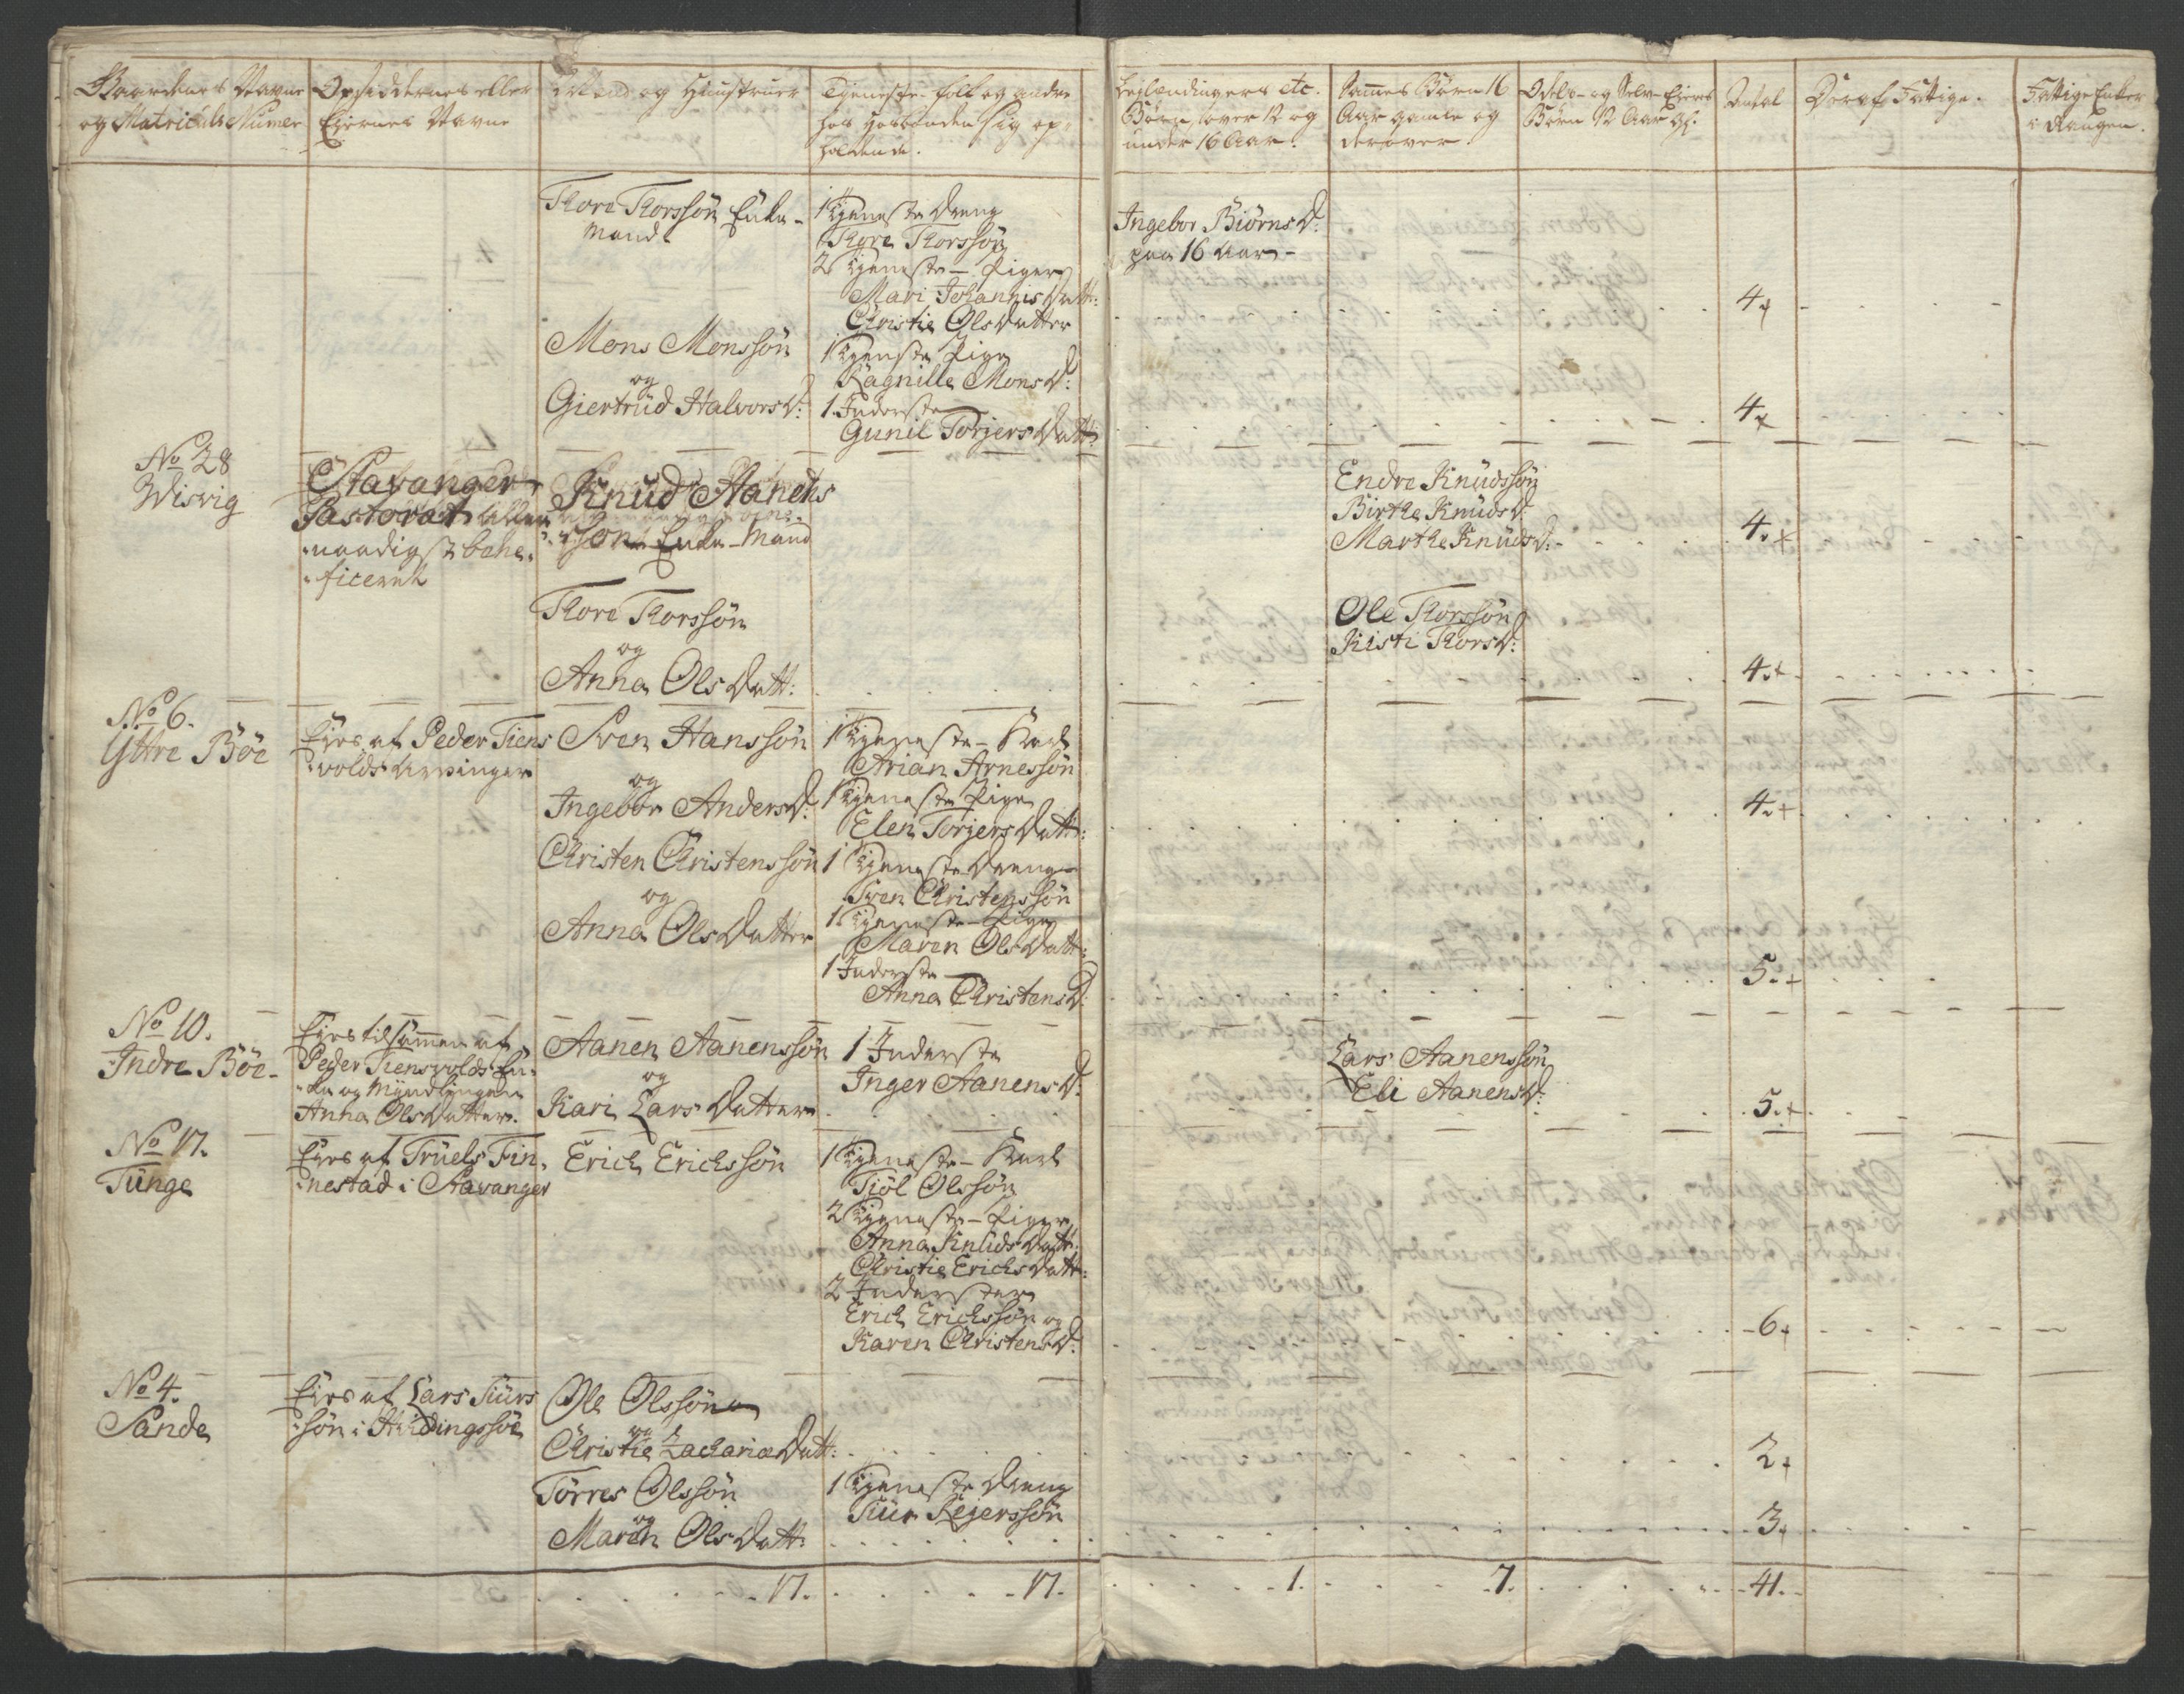 Gaardenes Navne
og Matriculs Numer
Opsiddernes eller
Eiernes Navne
og Huustruer
Tjeneste-folk og andre
hos Hosbonden sig op-
holdende.
Leilændingers etc.
Börn over 12 og
under 16 Aar.
Sammes Börn 16
Aar gamle og
derover.
Odels- og Selv-Eieres
Börn 12 Aar
Antal
Deraf Fattige.
Fattige Enker
i Rangen.
Thore Thorssön Enke-
Mand
1 Tjeneste Dreng
Thore Thorssön
2 Tjeneste-Piger
Mari Johannis Datt:
Christie Olsdatter
Ingebor BiörnsD:
paa 16 Aar-
4
Mons Monssön
og
Giertrüd HalvorsD:
1 Tjeneste Pige
Ragnille MonsD:
1. Inderste
Gunil Torjers Datt:
4
No 28
Wisvig
Stavanger
Pastorat aller-
naadigst bene-
ficeret
Knud Aanens
sön Enke-Mand
Endre Knudssön
Birthe KnudsD
Marthe KnudsD:
4.
Thore Thorssön
og
Anna Ols Datt:
Ole Thorssön
Kisti ThorsD:
4.
No 6.
Yttre Böe
Eies af Peder Tiens
volds Arvinger
Sven Hanssön
og
Ingebor AndersD:
1 Tjeneste-Karl
Arian Arnessön
1 Tjeneste Pige
Elen Torjers Datt:
4.
Christen Christenssön
og
Anna Ols Datter
1 Tjeneste Dreng
Sven Christenssön
1. Tjeneste-Pige
Maren Ols Datt:
1 Inderste
Anna ChristensD:
5.
No 10.
Indre Böe
Eies tilsammen af
Peder Tiensvolds En-
ke og Myndlingen
Anna Ols Datter.
Aanen Aanenssön
og
Kari Lars Datter
1 Inderste
Inger AanensD:
Lars Aanenssön
Eli AanensD:
5.
No 17.
Tunge
Eies af Truels Fin-
nestad i Stavanger
Erich Erichssön
1 Tjeneste-Karl
Tiöl Olssön
2 Tjeneste-Piger
Anna Knuds Datt:
Christie Erichs Datt:
2 Inderster
Erich Erichssön og
Karen ChristensD:
6
No 4.
Sande
Eies af Lars Siurs
sön i
Ole Olssön
og
Christie Zacharia Datt:
2
Törres Olssön
og
Maren Ols Datt:
1 Tjeneste Dreng
Siur Reierssön
3
17.
17.
1.
7.
41.